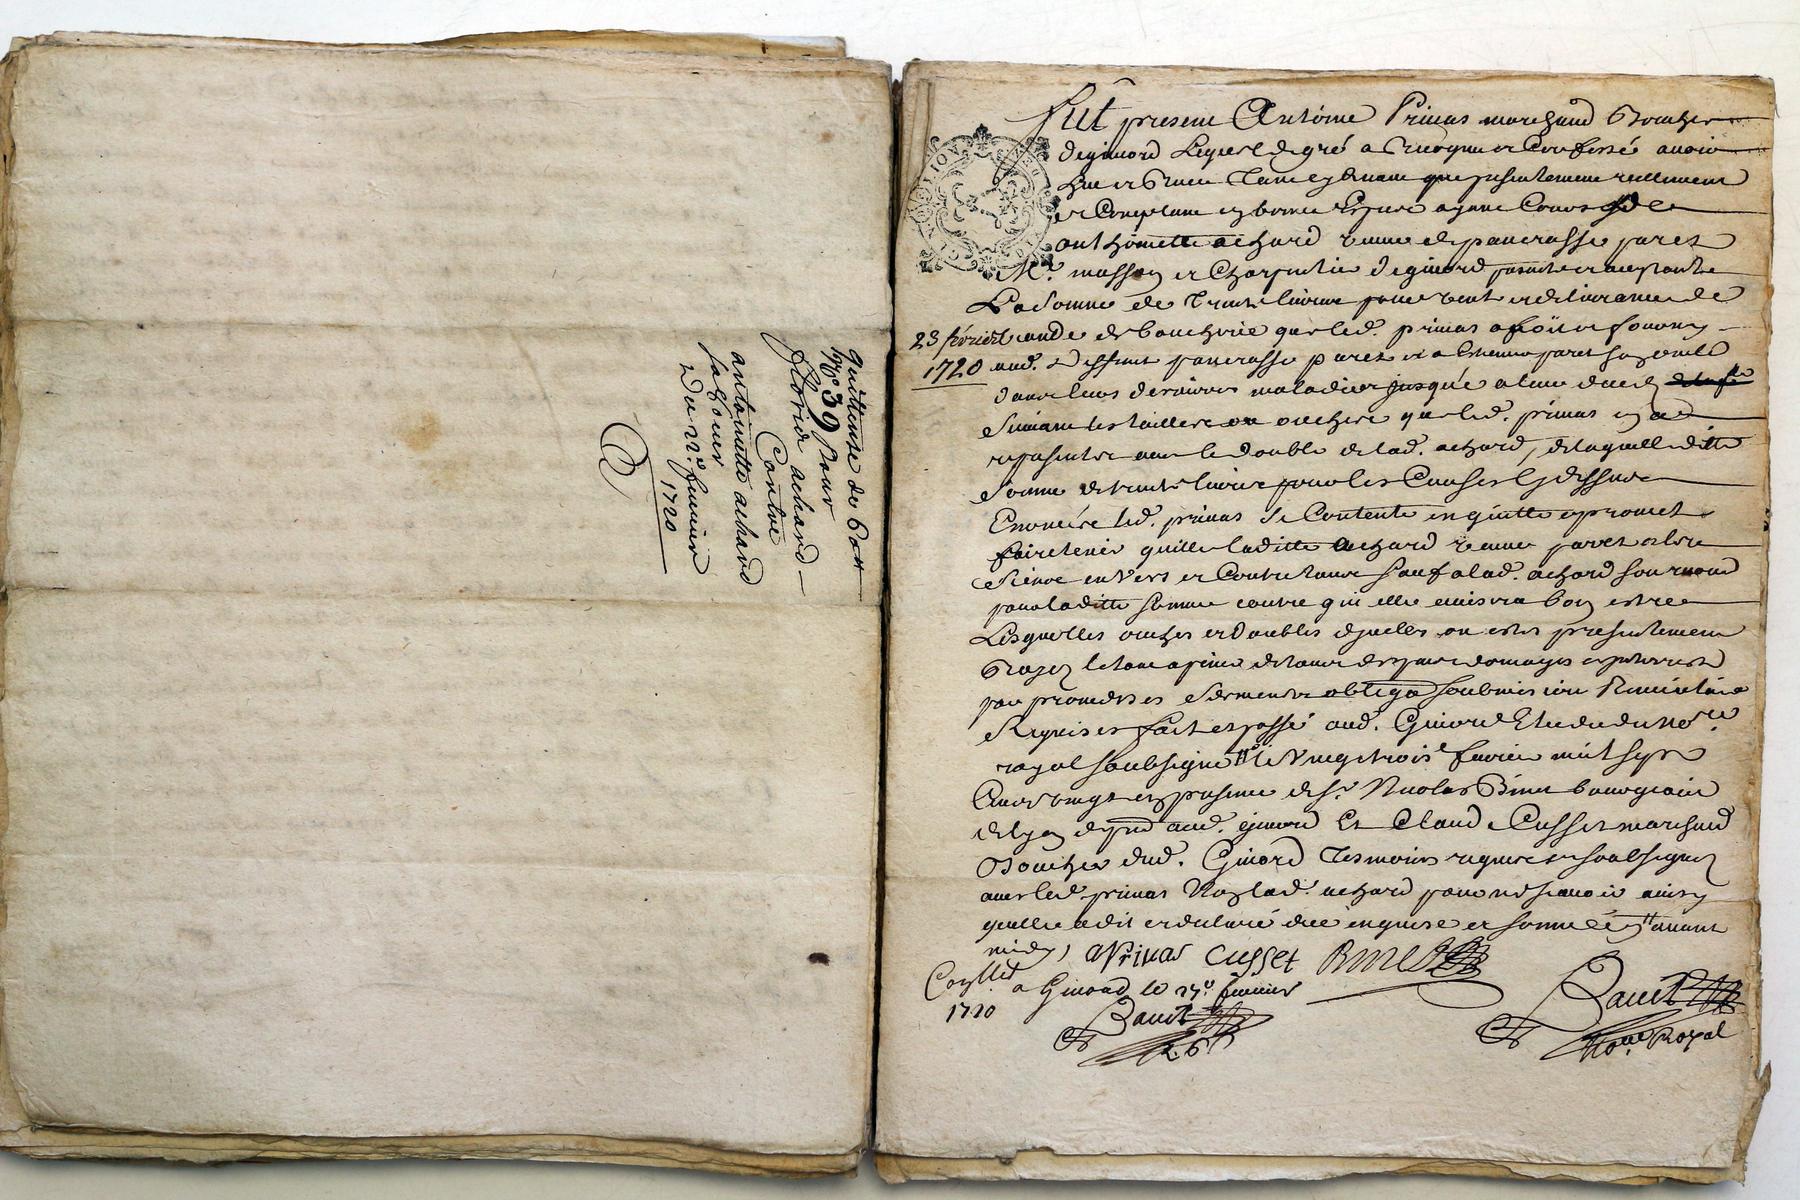 quittance de 60 #
N.o 39 pour
florie achard
Contre
antoinette achard
sa soeur
Du 22.e fevrier
1720
fut present Antoine Primas marchand Boucher
de givord Lequel de gré a Recognu et Confessé avoir
heu et receu
et Comptant en bonne Espece ayant Cours de
anthoinette achard veufve de pancrasse paret
M.e masson et Charpentier de givord presente et acceptante
La Somme de Trente livres pour vente et delivrance de
23 février viande de boucherie que led. primas a fait et fourny
1720 aud. deffunt pancrasse paret et a Estienne paret son fils
dans leurs dernieres maladies jusqu'a
Suivant les tailles ou ouches que led. primas en a
representé avec le double de lad. achard, de laquelle ditte
Somme de trente livres pour les Causes cy dessus
Enoncées led. primas Se Contente en quitte et promet
faire tenir quitte laditte achard veufve paret
envers et Contre tous Sauf a lad. achard son recours
pour laditte somme contre qui elle avisera bon estre
Lesquelles ouches et Doubles d'icelles ont estés presentement
a peine de tous despans domages et interests
par promesses Serments obligaõn soubmissions Renonciãons
Requises fait et passé aud. Givord Estude du No.re
royal soubsigné le Vingt trois.e fevrier mil sept
Cents vingt en presence de S.r Nicolas Binet bourgeois
de lyon aud. givord Et Claude Cusset marchand
Boucher dud. Givord Tesmoins requis et soubsignez
avec led. primas Non lad. achard pour ne scavoir ainsy
quelle a dit et declaré de ce enquise et sommée avant
midy, a Primas Cusset Binet
Con.llé a Givord le 27.e fevrier
1720
Bauet
Bauet
No.re Royal